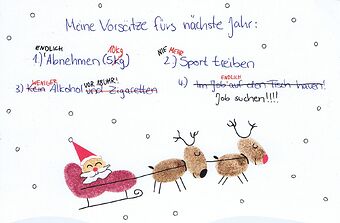 Meine Vorsätze fürs nächste Jahr:
ENDLICH 10kg NIE MEHR!
1.) Abnehmen (5kg) 2.) Sport treiben
WENIGER VOR 18 UHR! ENDLICH
3.) Kein Alkohol und Zigaretten 4.) Im Job auf den Tisch hauen!
Job suchen!!!!